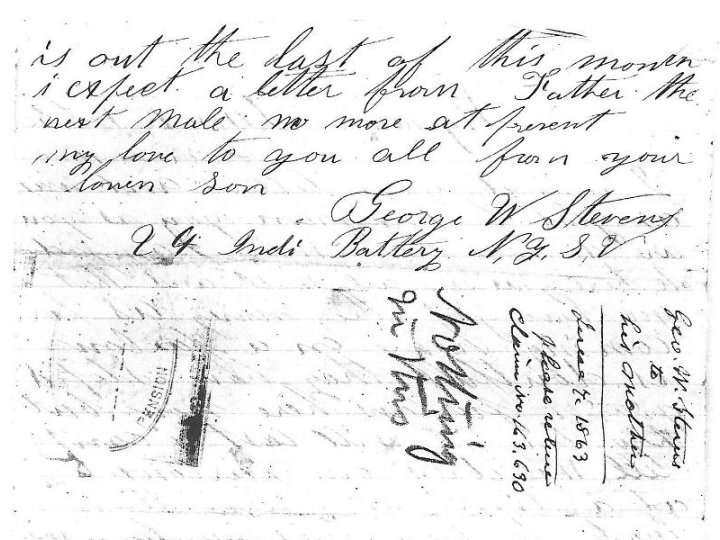 is out the last of this month
i expect a letter from Father the
next male no more at present
my love to you all from your
loven son
George W Stevens
24 Indi Battery N.Y.S.V
Nothing
in this
Geo. W. Stevens
to
his Mother
June 7. 1863
Please return
Claim No. 143.690
PENSION